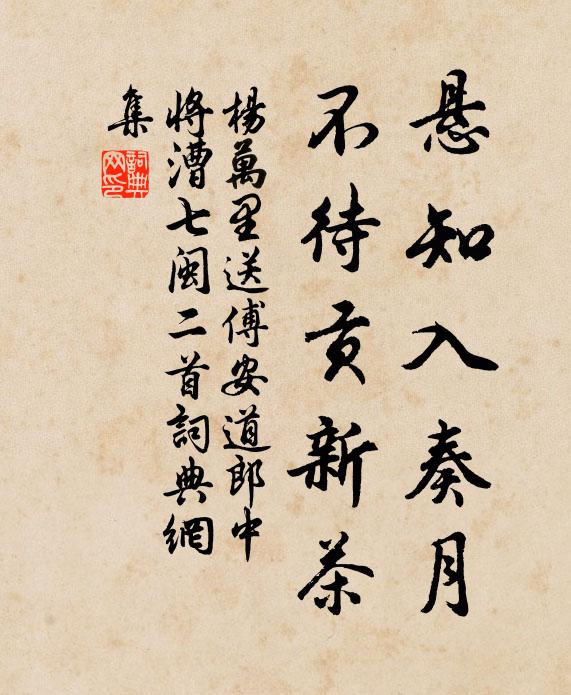 悬知入奏月
不待贡新茶
楊萬里送傅安道郎中
將漕七閩二首詞典網
集
詞典
网印